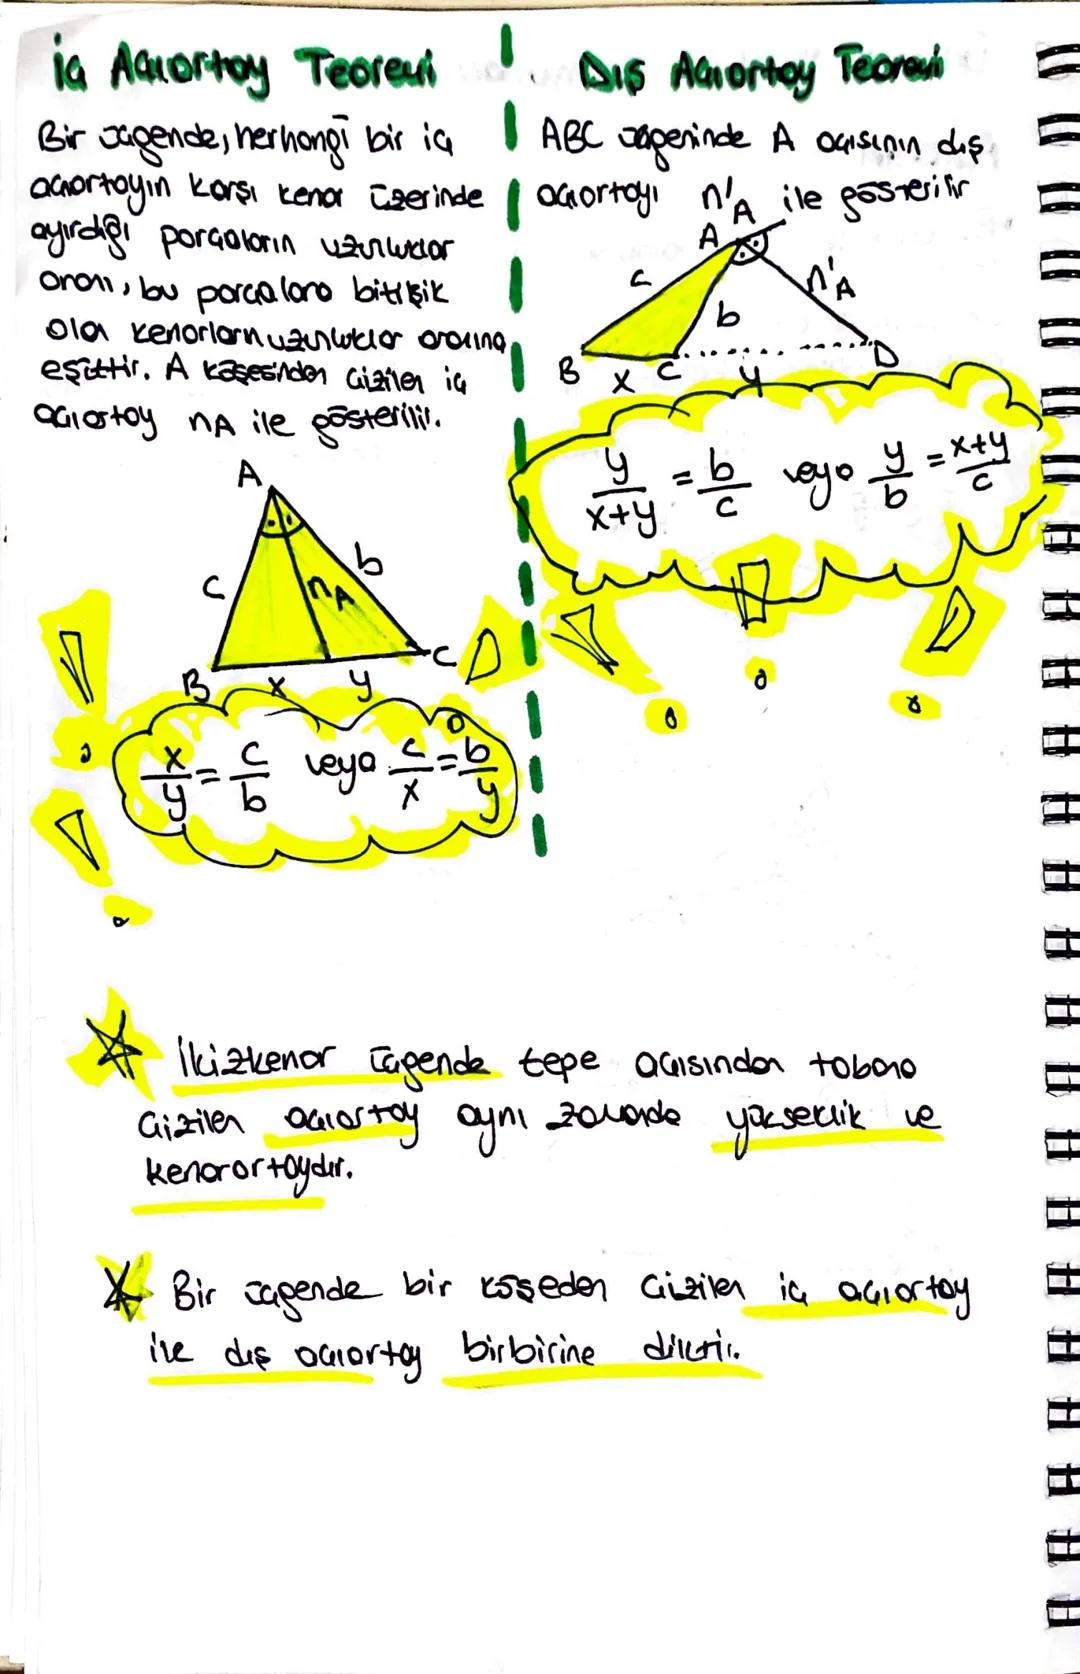 İç Açıortay Teoremi
Bir üçgende, herhangi bir iç
açıortayın karşı kenar üzerinde
ayırdığı parçaların uzunluklar
oranı, bu parçalara bitişik
olan kenarların uzunluklar oranına
eşittir. A köşesinden çizilen iç
açıortay nA ile gösterilir.
A
c
b
nA
B
x
y
C
D
x/y = c/b veya c/x = b/y
Dış Açıortay Teoremi
ABC üçgeninde A açısının dış
açıortayı n'A ile gösterilir
A
c
n'A
b
B
x
C
y
D
y/x+y = b/c veya y/b = x+y/c
İkizkenar üçgende tepe açısından tabana
çizilen açıortay aynı zamanda yükseklik ve
kenarortaydır.
Bir üçgende bir köşeden çizilen iç açıortay
ile dış açıortay birbirine diktir.